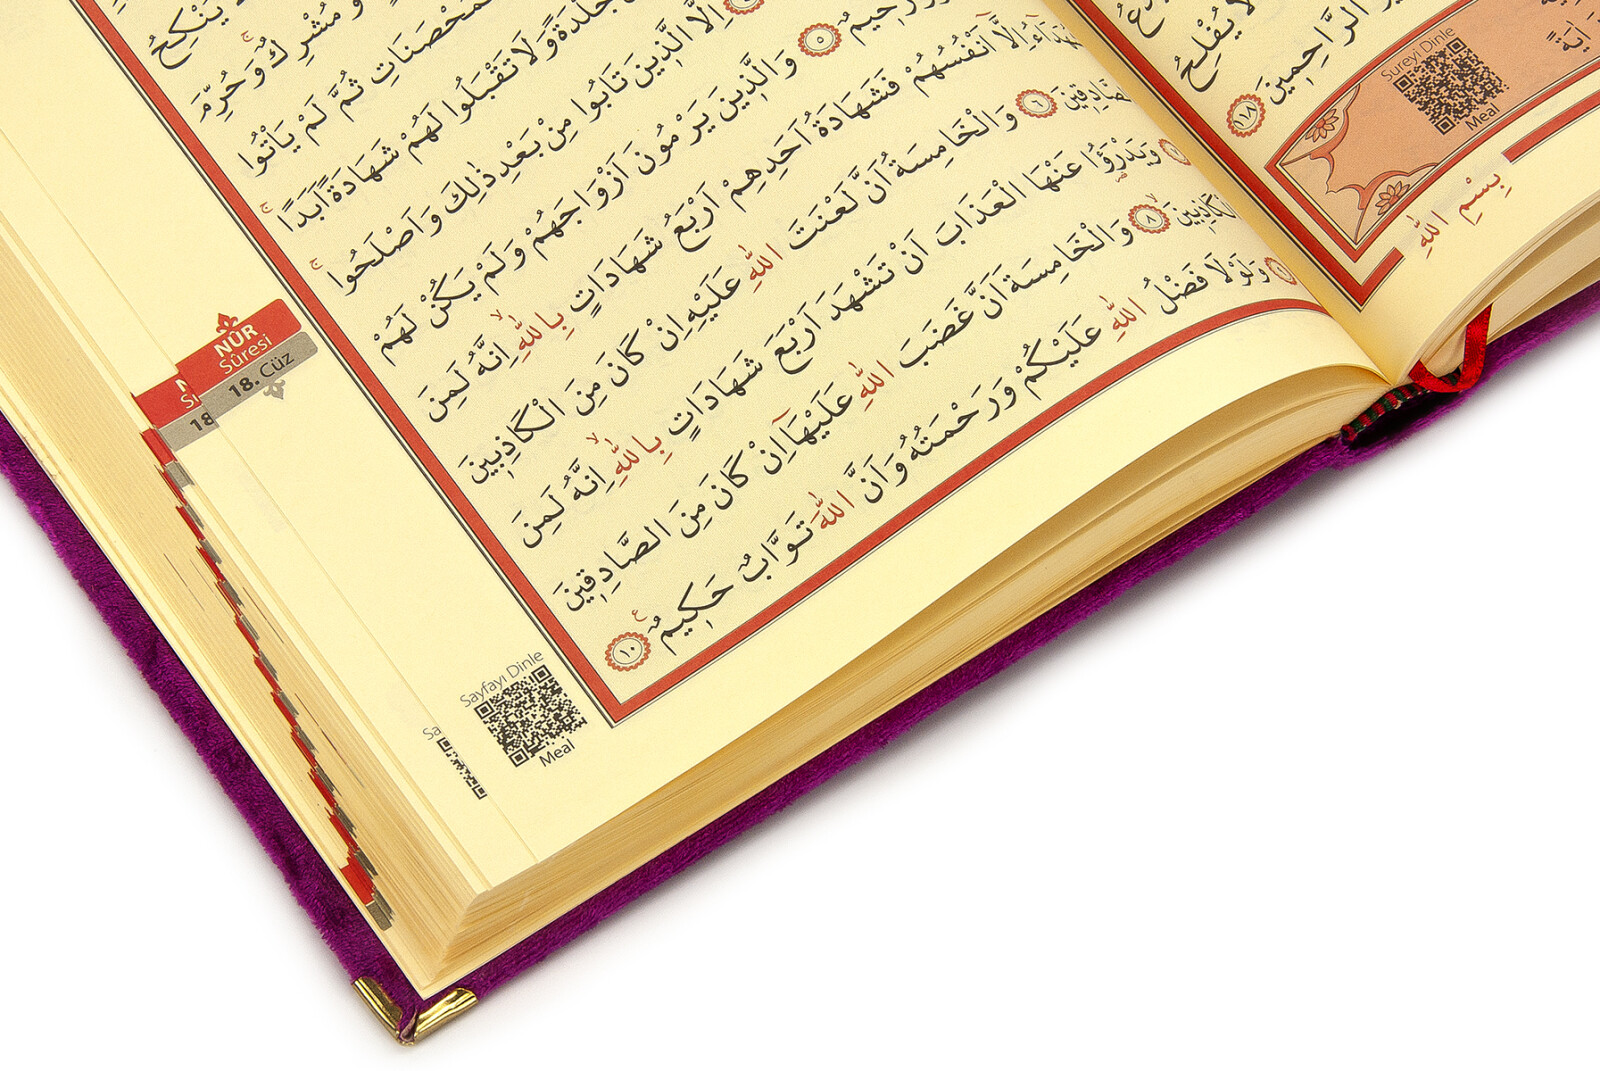 يَنْكِحُ
مُشْرِكٌ وَحُرِّمَ
الْمُحْصَنَاتِ ثُمَّ لَمْ يَأْتُوا
جَلْدَةً وَلَا تَقْبَلُوا لَهُمْ شَهَادَةً اَبَدًا
اِلَّا الَّذِينَ تَابُوا مِنْ بَعْدِ ذٰلِكَ وَاَصْلَحُوا
رَحِيمٌ ٥ وَالَّذِينَ يَرْمُونَ اَزْوَاجَهُمْ وَلَمْ يَكُنْ لَهُمْ
شُهَدَٓاءُ اِلَّٓا اَنْفُسُهُمْ فَشَهَادَةُ اَحَدِهِمْ اَرْبَعُ شَهَادَاتٍ بِاللّٰهِۙ اِنَّهُ لَمِنَ
الصَّادِقِينَ ٦ وَالْخَامِسَةُ اَنَّ لَعْنَتَ اللّٰهِ عَلَيْهِ اِنْ كَانَ مِنَ الْكَاذِبِينَ
٧ وَيَدْرَؤُا عَنْهَا الْعَذَابَ اَنْ تَشْهَدَ اَرْبَعَ شَهَادَاتٍ بِاللّٰهِۙ اِنَّهُ لَمِنَ
الْكَاذِبِينَۙ ٨ وَالْخَامِسَةَ اَنَّ غَضَبَ اللّٰهِ عَلَيْهَٓا اِنْ كَانَ مِنَ الصَّادِقِينَ
٩ وَلَوْلَا فَضْلُ اللّٰهِ عَلَيْكُمْ وَرَحْمَتُهُ وَاَنَّ اللّٰهَ تَوَّابٌ حَكِيمٌ ١٠
NÛR
Sûresi
18. Cüz
18
Sayfayı Dinle
Meal
Sa
لَا يُفْلِحُ
الرَّاحِمِينَ ١١٨
Sureyi Dinle
Meal
اٰيَةً
بِسْمِ اللّٰهِ